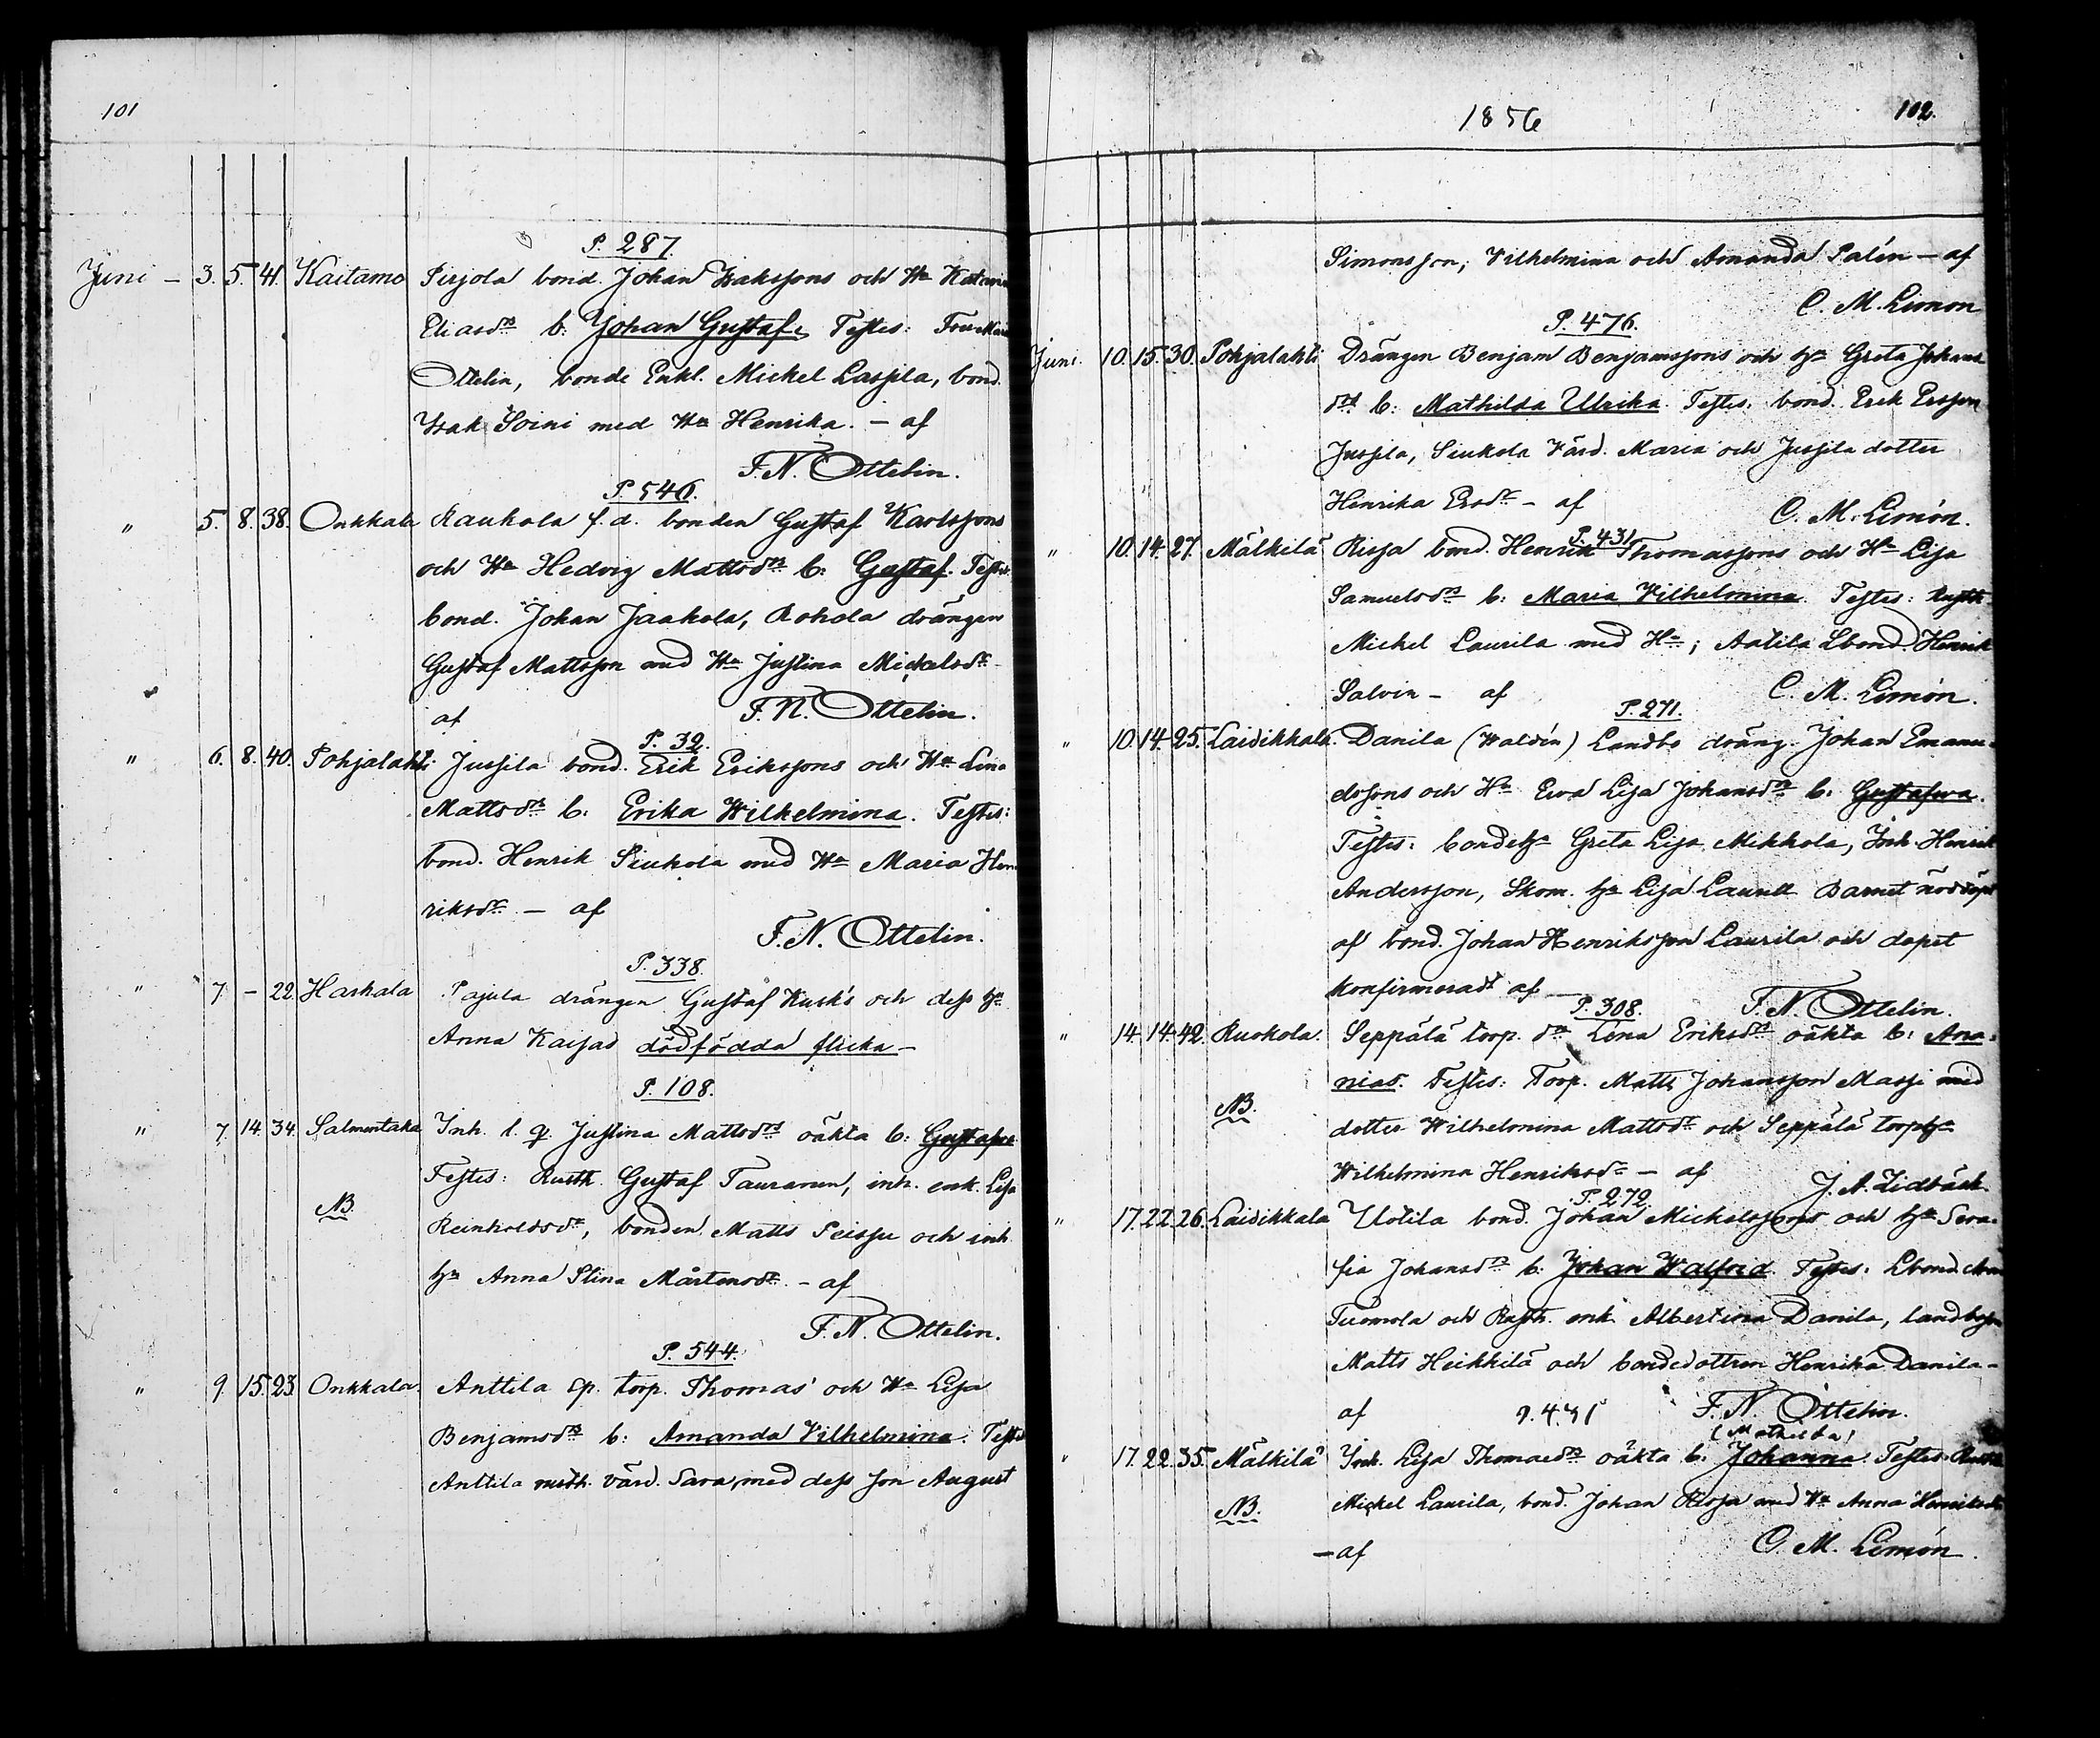 101
P. 287.
Juni – 3. 5. 41. Kaitamo Pirjola bond. Johan Isakssons och Hu Katarina
Eliasdrs b: Johan Gustaf. Testes: Fru Maria
Ottelin, bonde Enkl. Mickel Lassila, bond.
Isak Soini med Hu Henrika. – af
F. N. Ottelin.
P. 546.
" 5. 8. 38. Onkkala Raukola f. d. bonden Gustaf Karlssons
och Hu Hedvig Mattsdrs b: Gustaf. Testes:
bond. Johan Jaakola, Rohola drängen
Gustaf Mattsson med Hu Justina Mickelsdr
af F. N. Ottelin.
P. 32.
" 6. 8. 40. Pohjalahti Jussila bond. Erik Erikssons och Hu Lena
Mattsdrs b: Erika Wilhelmina. Testes:
bond. Henrik Siukola med Hu Maria Hen
riksdr – af
F. N. Ottelin.
P. 338.
" 7. – 22. Haskala Pajula drängen Gustaf Kusk's och dess hu
Anna Kaisas dödfödda flicka –
P. 108.
" 7. 14. 34. Salmentaka Inh. l. q. Justina Mattsdrs oäkta b: Gustafva
Testes: Rusth. Gustaf Tauranen, inh. enk. Lisa
NB.
Reinholdsdr, bonden Matts Peissu och inh.
hu Anna Stina Mårtensdr. – af
F. N. Ottelin.
P. 544.
" 9. 15. 23. Onkkala. Anttila sp. torp. Thomas' och Hu Lisa
Benjamsdrs b: Amanda Vilhelmina. Testes
Anttila rusth. värd. Sara, med dess son August
1856
102.
Simonsson, Vilhelmina och Amanda Palén – af
C. M. Limón
P. 476.
Juni. 10. 15. 30. Pohjalahti Drängen Benjam Benjamssons och hu Greta Johans
drs b: Mathilda Ulrika. Testes: bond. Erik Ersson
Jussila, Siukola Värd. Maria och Jussila dotter
Henrika Ersdr – af
C. M. Limón.
P. 431.
" 10. 14. 27. Mälkilä Risja bond. Henrik Thomassons och Hu Lisa
Samuelsdrs b: Maria Vilhelmina. Testes: Rusth.
Mickel Laurila med Hu; Anlila Lbond. Henrik
Salvin – af C. M. Limón.
P. 271.
" 10. 14. 25. Laidikkala. Danila (Waldén) Landbo dräng. Johan Emanu-
elssons och Hu Eva Lisa Johansdrs b: Gustafva.
Testes: bondehu Greta Lisa Mikkola, Inh. Henrik
Andersson, Skom. hu Lisa Laurell. Barnet nöddöpt
af bond. Johan Henriksson Laurila och dopet
konfirmeradt af – F. N. Ottelin.
P. 308.
" 14. 14. 42. Ruokola. Seppälä torp. dr Lena Eriksdrs oäkta b: Ana-
nias. Testes: Torp. Matts Johansson Massi med
NB.
dotter Wilhelmina Mattsdr och Seppälä torp hu
Wilhelmina Henriksdr – af J. A. Lidbäck.
P. 272.
" 17. 22. 26. Laidikkala Uotila bond. Johan Mickelssons och hu Sera-
fia Johansdrs b: Johan Walfrid. Testes: Lbond.
Tuomola och Rusth. enk. Albertina Danila, landbosn
Matts Heikkilä och bondedottren Henrika Danila –
af F. N. Ottelin.
P. 431 (Mathilda)
" 17. 22. 35. Mälkilä Inh. Lisa Thomasdrs oäkta b: Johanna. Testes: Rusth.
NB.
Mickel Laurila, bond. Johan Risja med Hu Anna Henriksdr
– af C. M. Limón.